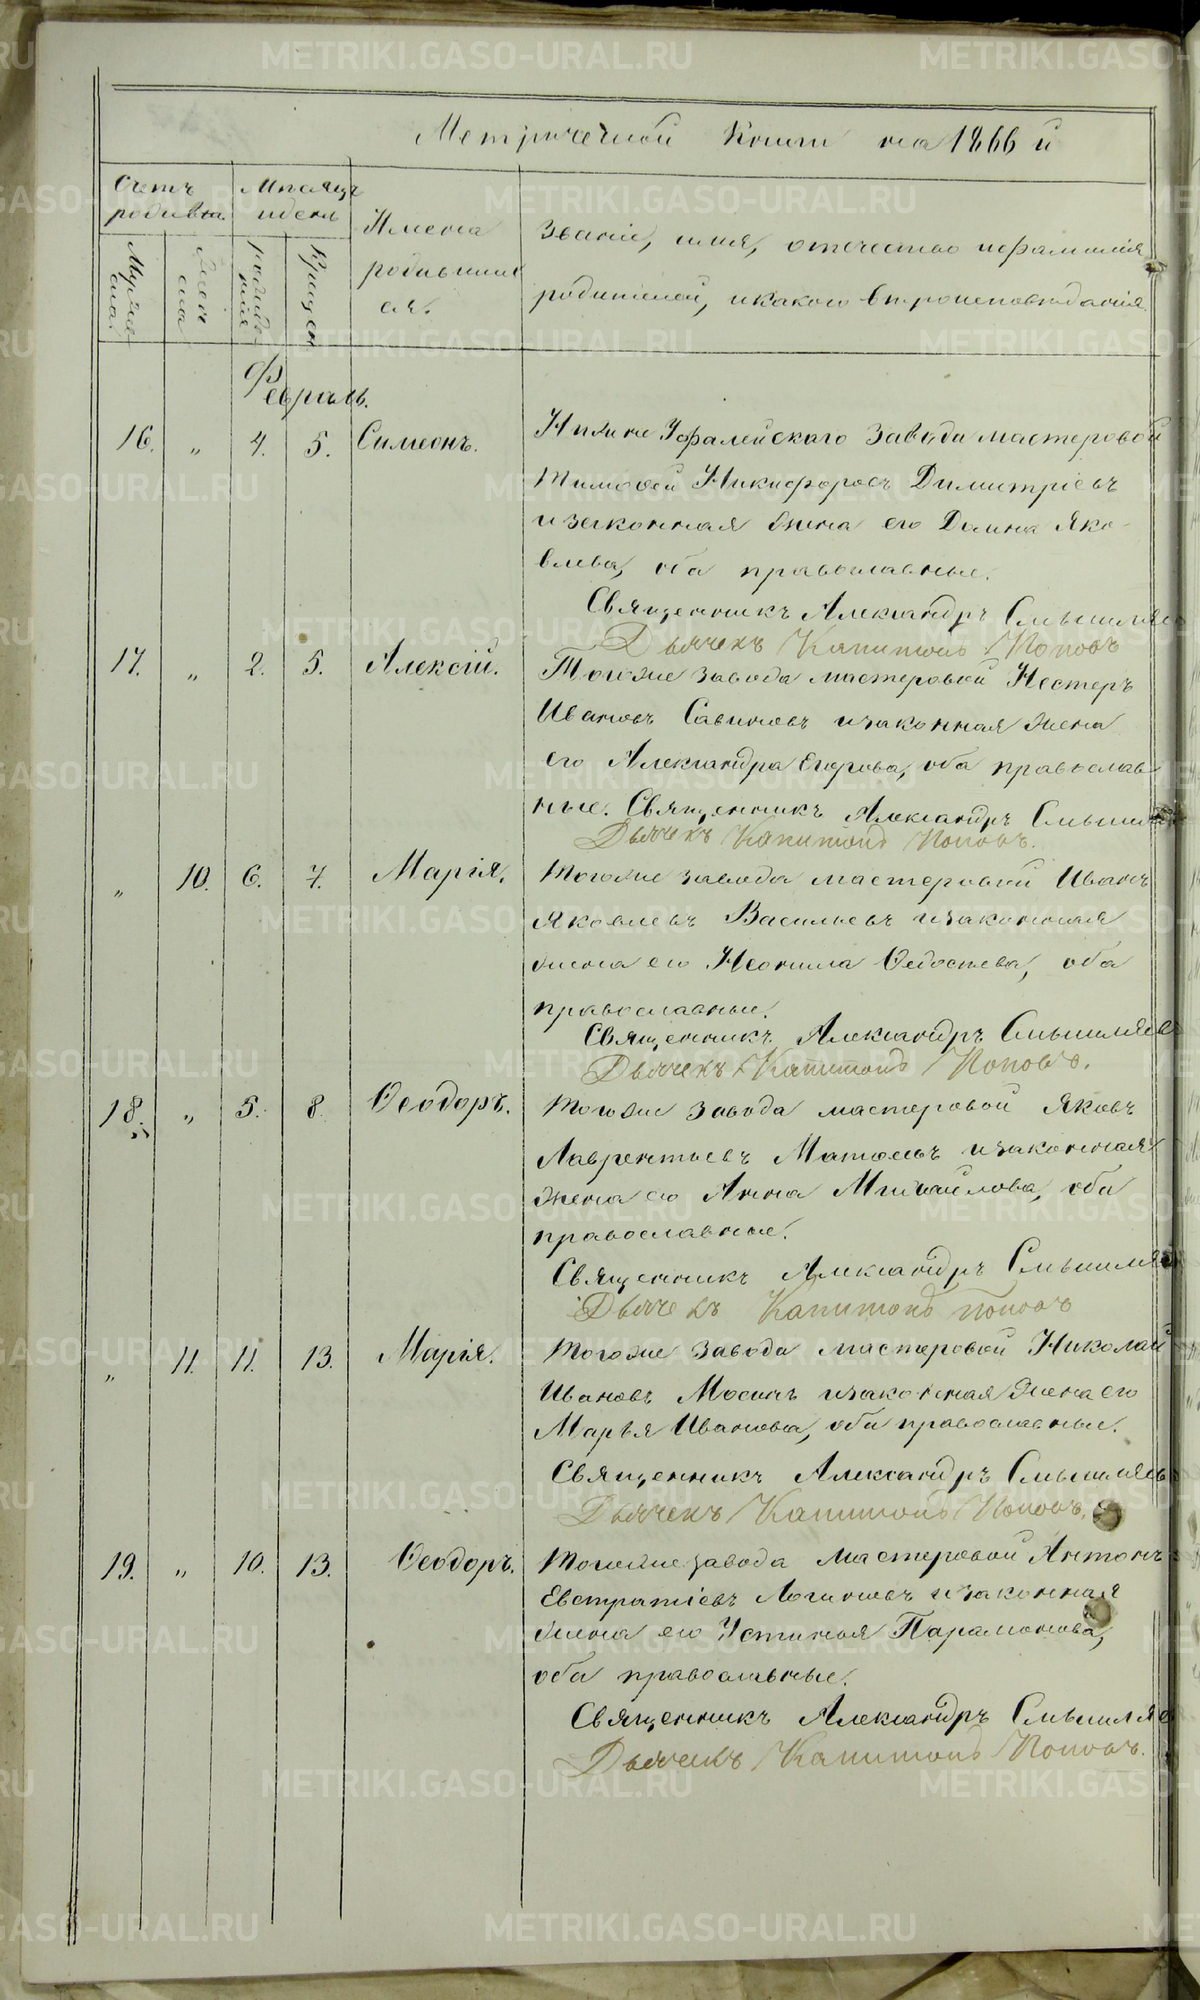 Метрической Книги на 1866 й
Счетъ родивш.
Мѣсяцъ и день
Имена родившихся.
Званіе, имя, отчество и фамилія
родителей, и какого вѣроисповѣданія
Мужеска.
Женска
рожденія
Крещен
Февраль.
16. „ 4. 5. Симеонъ.
Нижне Уфалейскаго завода мастеровой
Тимофей Никифоровъ Димитріевъ
и законная жена его Домна Яко-
влева, оба православные.
Священникъ Александръ Смышляев
Дьячекъ Капитонъ Поповъ
17. „ 2. 5. Алексій.
Тогоже завода мастеровой Нестеръ
Ивановъ Савиновъ и законная жена
его Александра Егорова, оба православ-
ные. Священникъ Александръ Смышл
Дьячекъ Капитонъ Поповъ.
„ 10. 6. 7. Марія.
Тогоже завода мастеровой Иванъ
Яковлевъ Васильевъ и законная
жена его Неонила Ѳедосѣева, оба
православные.
Священникъ Александръ Смышляев
Дьячекъ Капитонъ Поповъ.
18. „ 5. 8. Ѳеодоръ.
Тогоже завода мастеровой Яковъ
Лаврентьевъ и законная
жена его Анна Михайлова, оба
православные.
Священникъ Александръ Смышляе
Дьячекъ Капитонъ Поповъ
„ 11. 11. 13. Марія.
Тогоже завода мастеровой Николай
Ивановъ Мосинъ и законная жена его
Марья Иванова, оба православные.
Священникъ Александръ Смышляевъ
Дьячекъ Капитонъ Поповъ.
19. „ 10. 13. Ѳеодоръ.
Тогоже завода мастеровой Антонъ
Евстратіевъ Логиновъ и законная
жена его Устинья Парамонова,
оба православные.
Священникъ Александръ Смышляе
Дьячекъ Капитонъ Поповъ.
METRIKI.GASO-URAL.RU